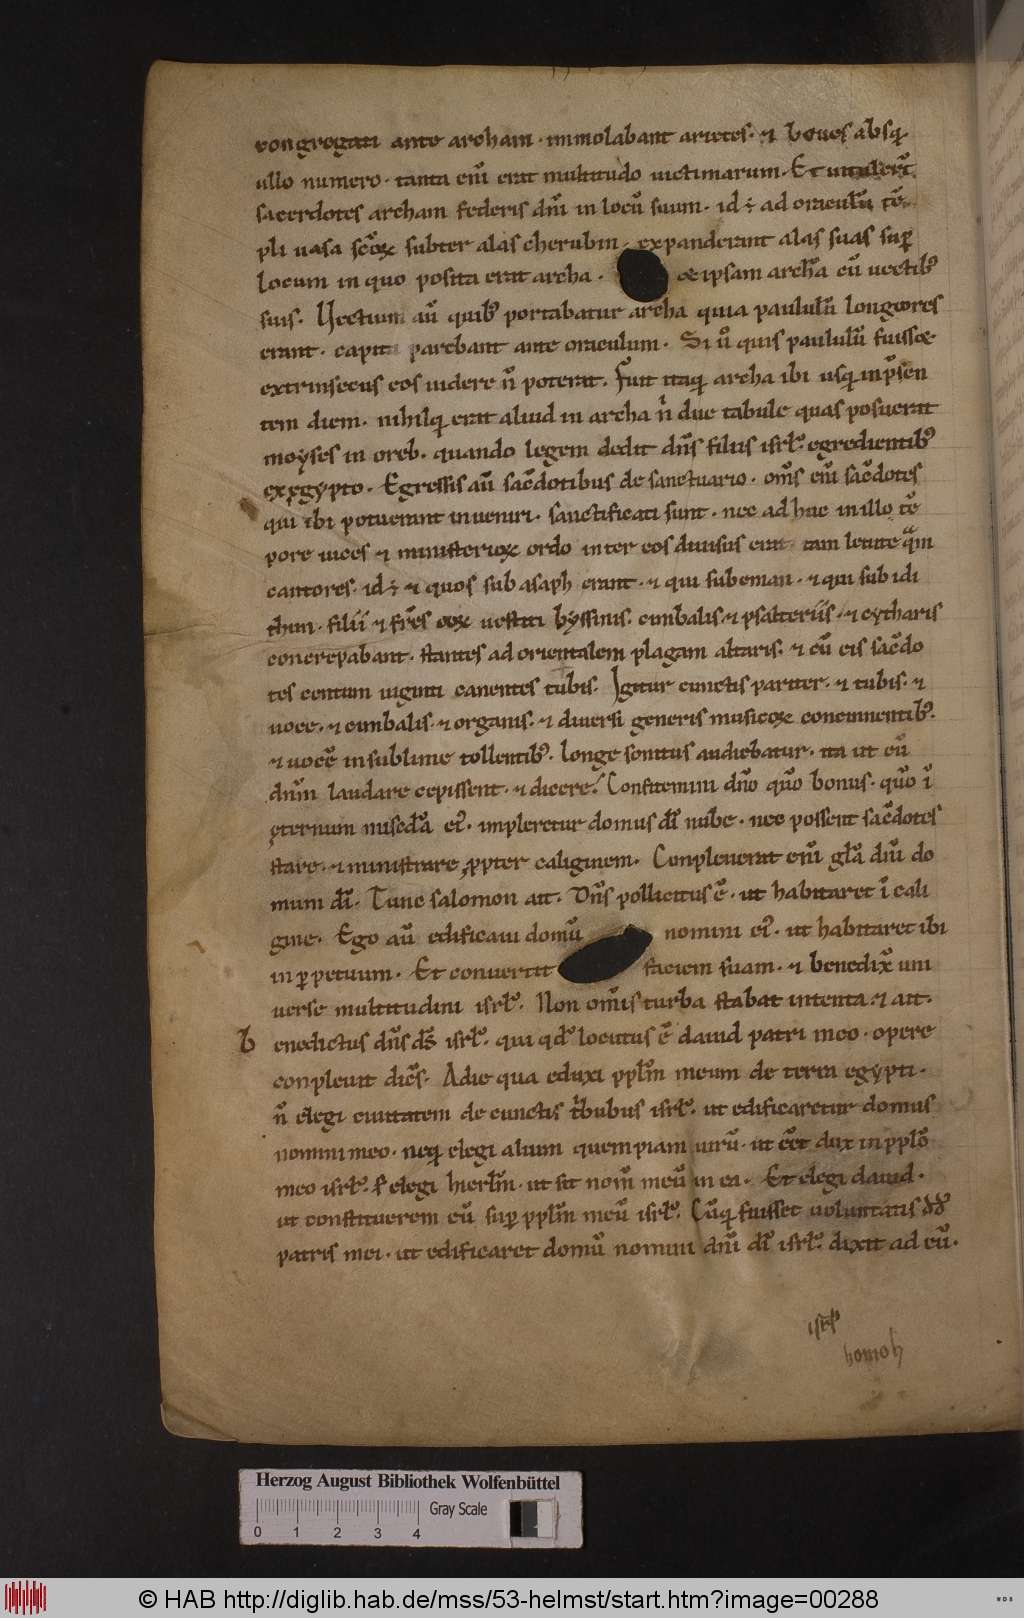 congregati ante archam· immolabant arietes· ⁊ boues absq;
ullo numero· tanta eni̅ erat multitudo uictimarum· Et intuler̅t
sacerdotes archam federis dn̅i in locu̅ suum· id ÷ ad oraculu̅ te̅
pli in sc̅a sc̅oꝝ subter alas cherubin· expanderant alas suas sup̅
locum in quo posita erat archa· &ipsam archa̅ cu̅ uectib;
suis· Uectium au̅ quib; portabatur archa quia paululu̅ longiores
erant· capita parebant ante oraculum· Si ů quis paululu̅ fuiss&
extrinsecus eos uidere n̅ poterat· Fuit itaq; archa ibi usq; inp̅sen
tem diem· nihilq; erat aliud in archa n̅ due tabule quas posuerat
moyses in oreb· quando legem dedit dn̅s filiis isrl̅· egredientib;
exęgypto· Egressis au̅ sac̅dotibus de sanctuario· om̅s eni̅ sac̅dotes
qui ibi potuerant inueniri· sanctificati sunt· nec adhuc inillo te̅
pore uices ⁊ ministerioꝝ ordo inter eos diuisus erat tam leuite qᵃm
cantores· id ÷ ⁊ quos sub asaph erant· ⁊ qui sub eman· ⁊ qui sub idi
thun· filii ⁊ fr̅es eoꝝ uestiti byssinis· cimbalis· ⁊ psalteriis· ⁊ cytharis
concrepabant· stantes ad orientalem plagam altaris· ⁊ cu̅ eis sac̅do
tes centum uiginti canentes tubis· Igitur cunctis pariter· ⁊ tubis· ⁊
uoce· ⁊ cimbalis· ⁊ organis· ⁊ diuersi generis musicoꝝ concinentib;
⁊ uoce̅ in sublime tollentib; longe sonitus audiebatur· ita ut cu̅
dn̅m laudare cepissent· ⁊ dicere· Confitemini dn̅o qm̅ bonus· qm̅ i̅
ęternum mis̅cdia ei;· impleretur domus dī nube· nec possent sac̅dotes
stare· ⁊ ministrare ꝓpter caliginem· Conpleuerat eni̅ gl̅a dn̅i do
mum dī· Tunc salomon ait· Dn̅s pollicitus e̅· ut habitaret i̅ cali
gine· Ego au̅ edificaui domu̅ nomini ei;· ut habitaret ibi
in ꝑpetuum· Et conuertit faciem suam· ⁊ benedix̅ uni
uerse multitudini isrl̅· Nam om̅is turba stabat intenta· ⁊ ait·
Benedictus dn̅s ds̅ isrl̅· qui qd̅ locutus e̅ dauid patri meo· opere
conpleuit dice̅s· Adie qua eduxi ppl̅m meum de terra egypti·
n̅ elegi ciuitatem de cunctis tⁱbubus isrl̅· ut edificaretur domus
nomini meo· neq; elegi alium quempiam uiru̅· ut e̅et dux in ppl̅o
meo isrl̅· S; elegi hierl̅m· ut sit nom̅ meu̅ in ea· Et elegi dauid·
ut constituerem eu̅ sup̅ ppl̅m meu̅ isrl̅· Cu̅q; fuisset uoluntatis dd̅
patris mei· ut edificaret domu̅ nomini dn̅i dī isrl̅· dixit ad eu̅·
isrl̅
Herzog August Bibliothek Wolfenbüttel
Gray Scale
0 1 2 3 4
© HAB http://diglib.hab.de/mss/53-helmst/start.htm?image=00288